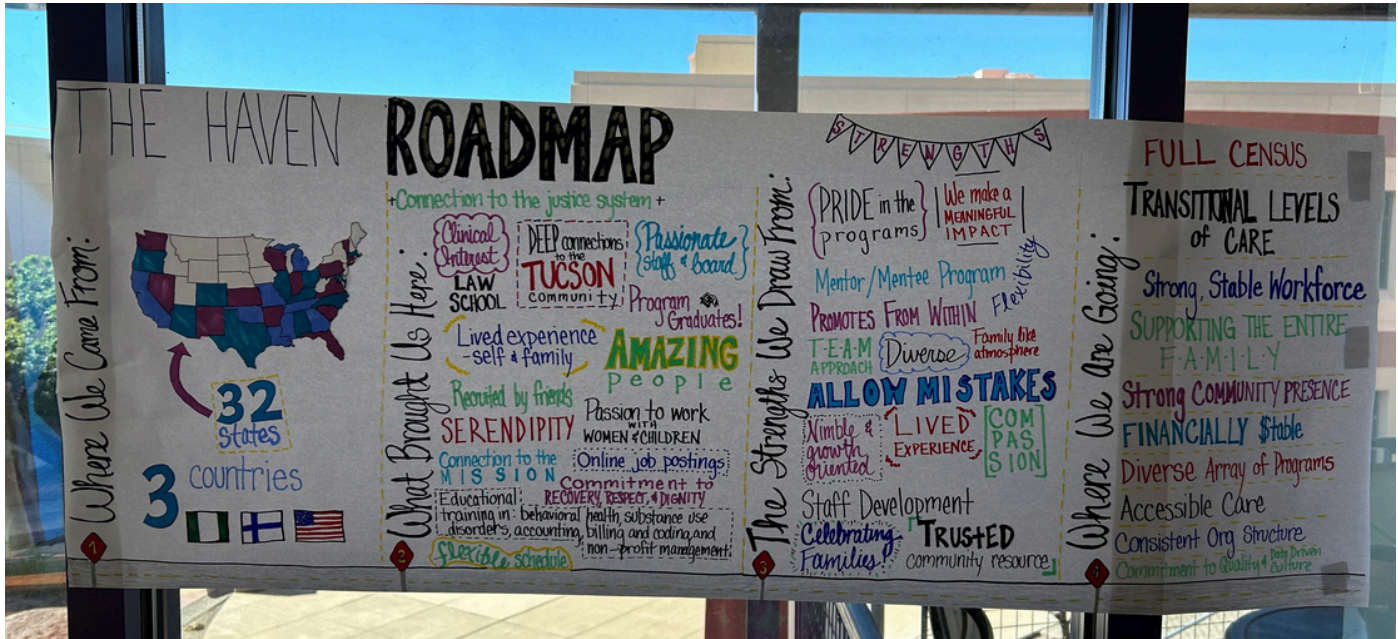 THE HAVEN ROADMAP
Where We Came From:
32
states
3 countries
1
What Brought Us Here:
+Connection to the justice system+
Clinical
Interest
LAW
SCHOOL
DEEP connections
to the
TUCSON
community
Passionate
staff & board
Program
Graduates!
Lived experience
-self & family
AMAZING
People
Recruited by friends
SERENDIPITY
Passion to work
WITH
WOMEN & CHILDREN
Connection to the
MISSION
Online job postings
Commitment to
RECOVERY, RESPECT, & DIGNITY
Educational
training in: behavioral health, substance use
disorders, accounting, billing and coding, and
non-profit management.
flexible schedule
2
The Strengths We Draw From:
STRENGTHS
PRIDE in the
programs
We make a
MEANINGFUL
IMPACT
Mentor/Mentee Program
Flexibility
PROMOTES FROM WITHIN
T-E-A-M
APPROACH
Diverse
Family like
atmosphere
ALLOW MISTAKES
Nimble &
growth
oriented
LIVED
EXPERIENCE
COM
PAS
SION
Staff Development
Celebrating
Families!
TRUSTED
community resource
3
Where We are Going:
FULL CENSUS
TRANSITIONAL LEVELS
of CARE
Strong, Stable Workforce
SUPPORTING THE ENTIRE
F-A-M-I-L-Y
Strong COMMUNITY PRESENCE
FINANCIALLY $table
Diverse Array of Programs
Accessible Care
Consistent Org Structure
Commitment to Quality & Data Driven
Culture
4